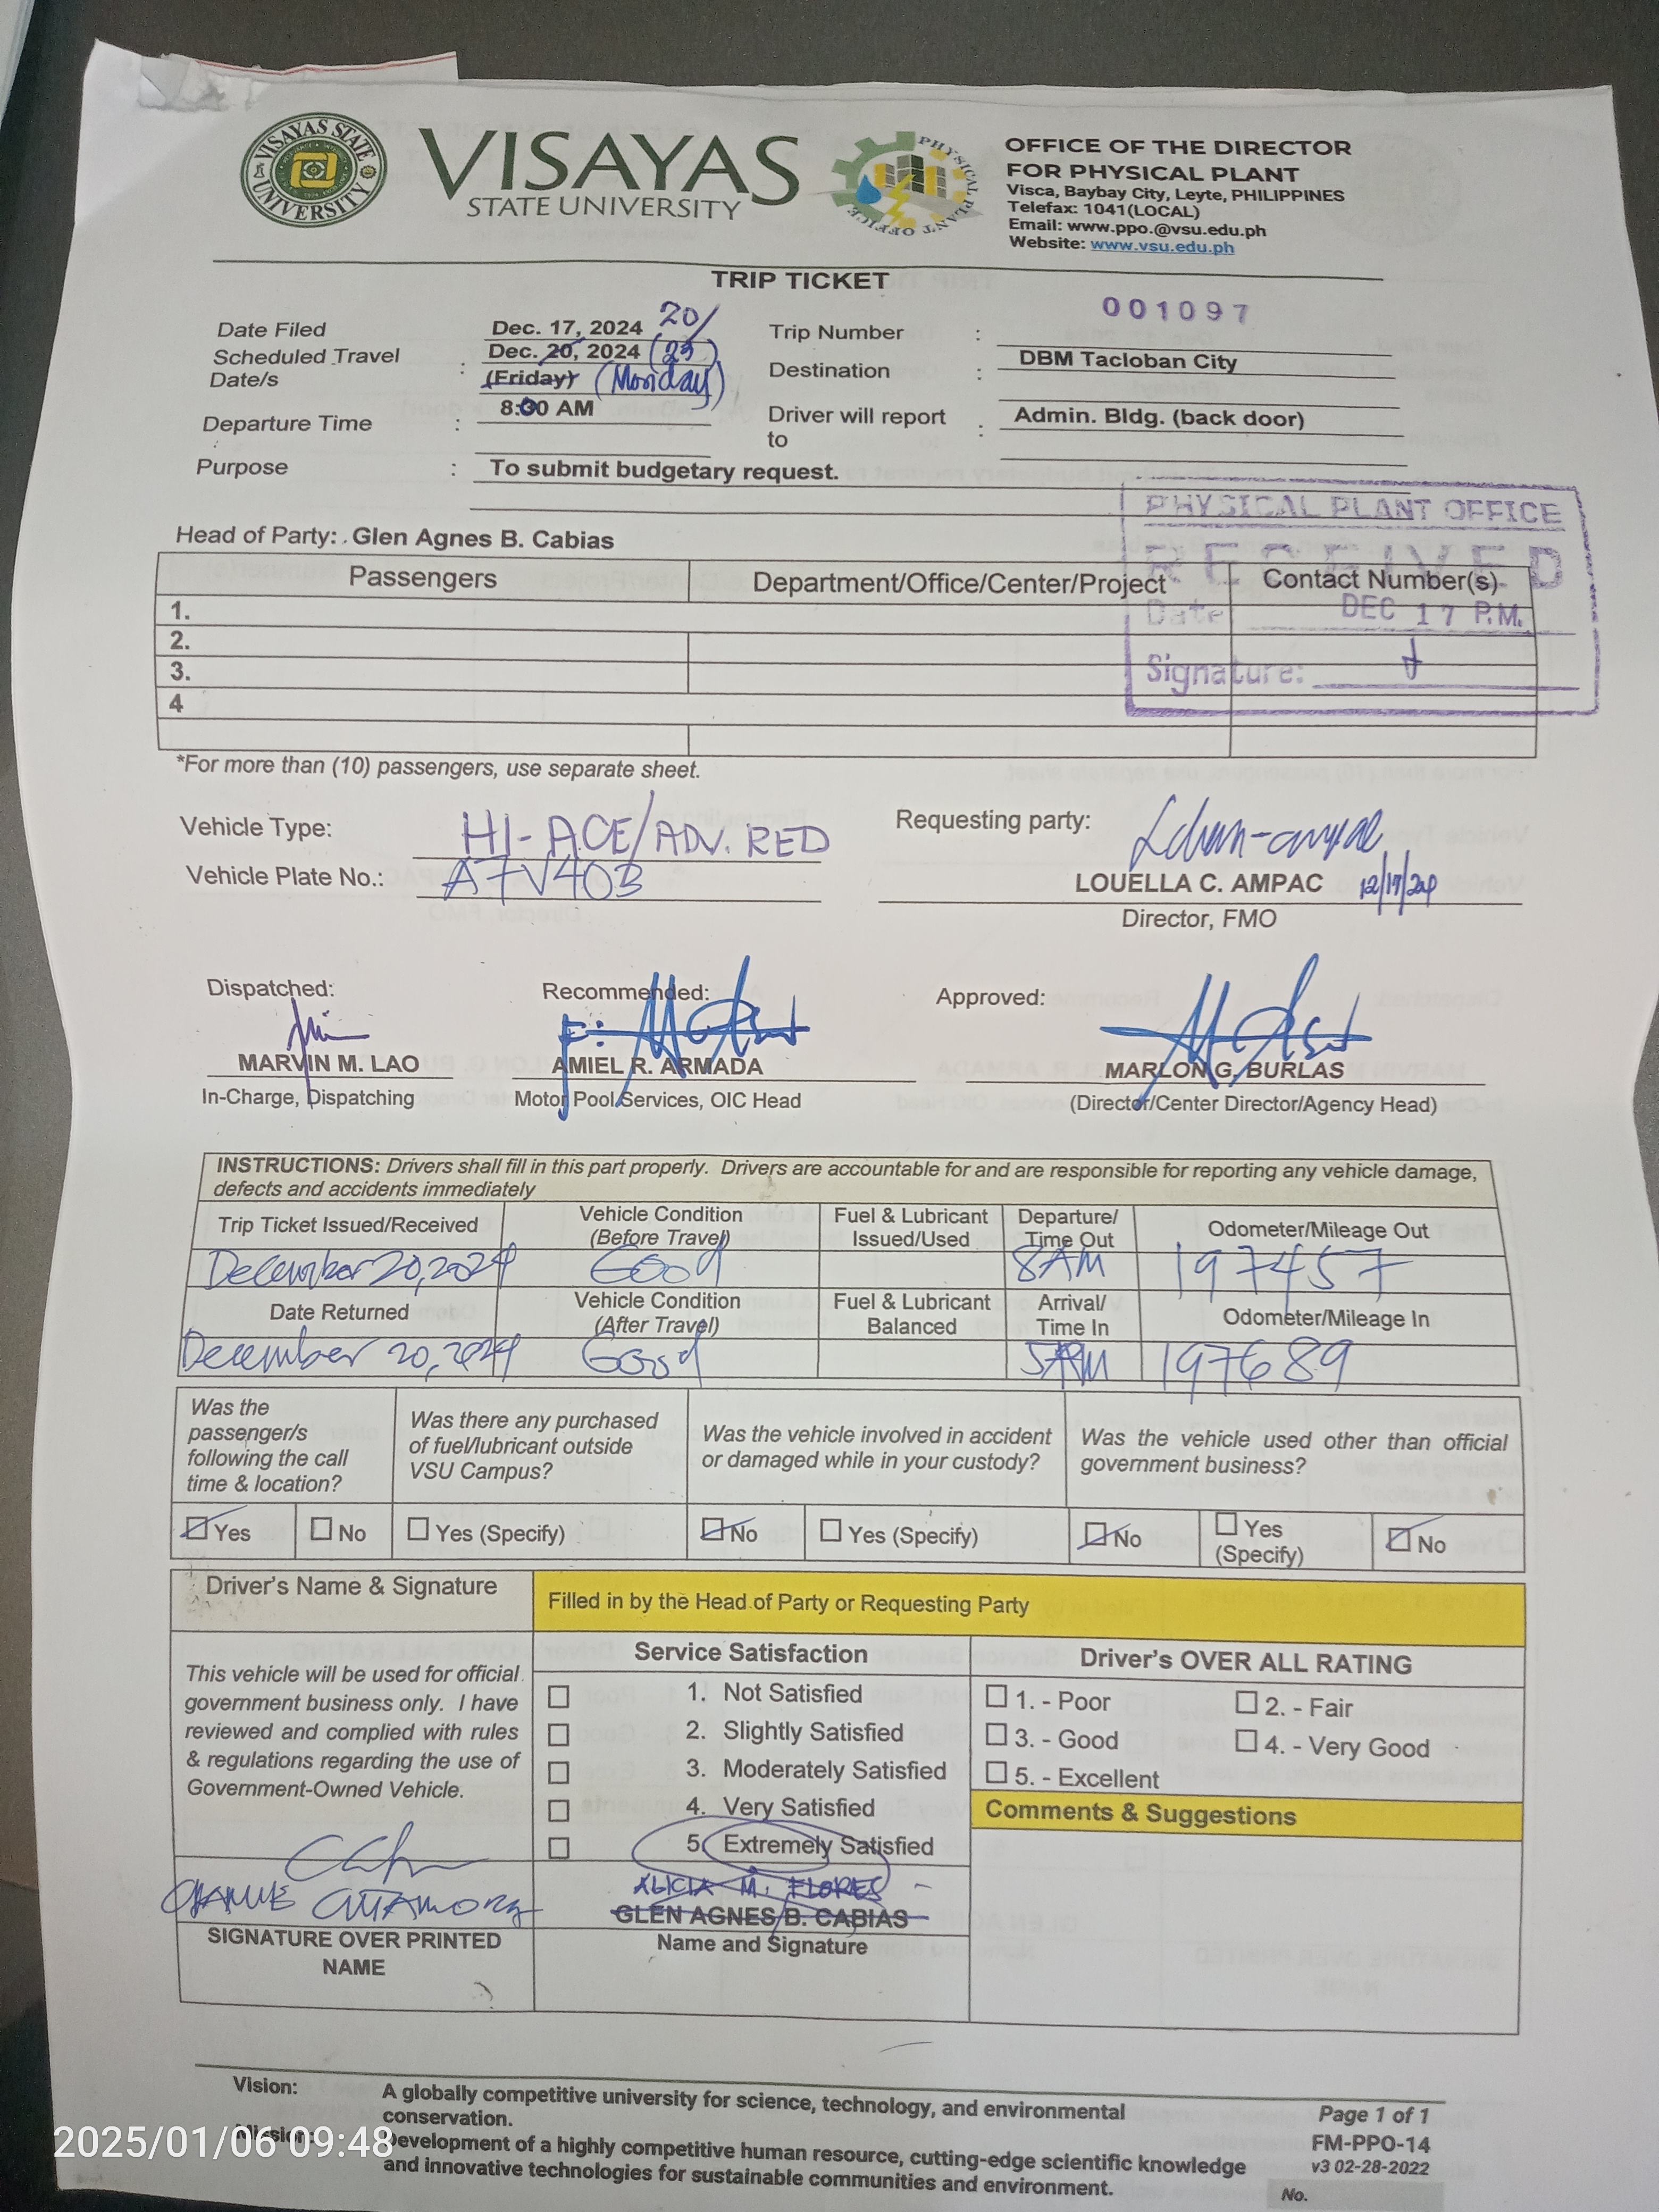 VISAYAS STATE UNIVERSITY
VISAYAS
STATE UNIVERSITY
PHYSICAL PLANT OFFICE
OFFICE OF THE DIRECTOR
FOR PHYSICAL PLANT
Visca, Baybay City, Leyte, PHILIPPINES
Telefax: 1041(LOCAL)
Email: www.ppo.@vsu.edu.ph
Website: www.vsu.edu.ph
TRIP TICKET
001097
Date Filed Dec. 17, 2024 20/ Trip Number :
Scheduled Travel Date/s : Dec. 20, 2024 (23) (Friday) (Monday) Destination : DBM Tacloban City
Departure Time : 8:00 AM Driver will report to : Admin. Bldg. (back door)
Purpose : To submit budgetary request.
PHYSICAL PLANT OFFICE
RECEIVED
Date DEC 17 P.M.
Signature:
Head of Party: Glen Agnes B. Cabias
Passengers Department/Office/Center/Project Contact Number(s)
1.
2.
3.
4
*For more than (10) passengers, use separate sheet.
Vehicle Type: HI-ACE/ADV. RED Requesting party:
Vehicle Plate No.: A7V40B LOUELLA C. AMPAC
Director, FMO
Dispatched: Recommended: Approved:
MARVIN M. LAO F: AMIEL R. ARMADA MARLON G. BURLAS
In-Charge, Dispatching Motor Pool Services, OIC Head (Director/Center Director/Agency Head)
INSTRUCTIONS: Drivers shall fill in this part properly. Drivers are accountable for and are responsible for reporting any vehicle damage,
defects and accidents immediately
Trip Ticket Issued/Received Vehicle Condition (Before Travel) Fuel & Lubricant Issued/Used Departure/ Time Out Odometer/Mileage Out
December 20, 2024 Good 8AM 197457
Date Returned Vehicle Condition (After Travel) Fuel & Lubricant Balanced Arrival/ Time In Odometer/Mileage In
December 20, 2024 Good 197689
Was the passenger/s following the call time & location?
Was there any purchased of fuel/lubricant outside VSU Campus?
Was the vehicle involved in accident or damaged while in your custody?
Was the vehicle used other than official government business?
Yes No Yes (Specify) No Yes (Specify) No Yes (Specify) No
Driver's Name & Signature Filled in by the Head of Party or Requesting Party
Service Satisfaction Driver's OVER ALL RATING
This vehicle will be used for official
government business only. I have
reviewed and complied with rules
& regulations regarding the use of
Government-Owned Vehicle.
1. Not Satisfied
2. Slightly Satisfied
3. Moderately Satisfied
4. Very Satisfied
5. Extremely Satisfied
1. - Poor 2. - Fair
3. - Good 4. - Very Good
5. - Excellent
Comments & Suggestions
ALICIA M. FLORES
GLEN AGNES B. CABIAS
SIGNATURE OVER PRINTED
NAME
Name and Signature
Vision: A globally competitive university for science, technology, and environmental
conservation.
Mission: Development of a highly competitive human resource, cutting-edge scientific knowledge
and innovative technologies for sustainable communities and environment.
Page 1 of 1
FM-PPO-14
v3 02-28-2022
No.
2025/01/06 09:48